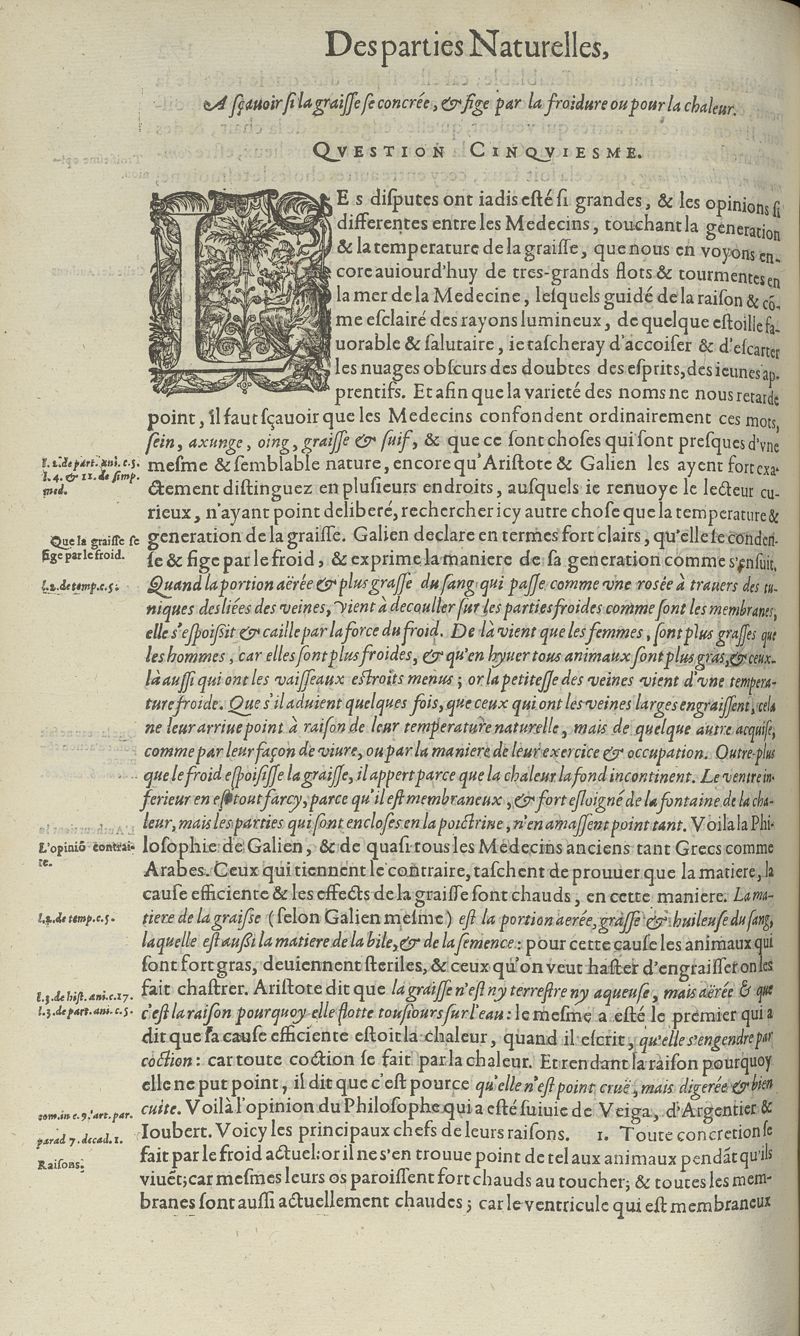 Des parties Naturelles,
A sçauoir si la graisse se concrée, & fige par la froidure ou pour la chaleur.
QVESTION CINQVIESME.
LEs disputes ont iadis esté si grandes, & les opinions si
differentes entre les Medecins, touchant la generation
& la temperature de la graisse, que nous en voyons en-
core auiourd'huy de tres-grands flots & tourmentes en
la mer de la Medecine, lesquels guidé de la raison & cõ-
me esclairé des rayons lumineux, de quelque estoille fa-
uorable & salutaire, ie tascheray d'accoiser & d'escarter
les nuages obscurs des doubtes des esprits, des ieunes ap-
prentifs. Et afin que la varieté des noms ne nous retarde
point, il faut sçauoir que les Medecins confondent ordinairement ces mots,
sein, axunge, oing, graisse & suif, & que ce sont choses qui sont presques d'vne
l. 2. de part. ani. c. 5.
mesme & semblable nature, encore qu'Aristote & Galien les ayent fort exa-
l. 4. & 11. de simp.
ctement distinguez en plusieurs endroits, ausquels ie renuoye le lecteur cu-
med.
rieux, n'ayant point deliberé, rechercher icy autre chose que la temperature &
Que la graisse se
generation de la graisse. Galien declare en termes fort clairs, qu'elle se conden-
fige par le froid.
se & fige par le froid, & exprime la maniere de sa generation comme s'ensuit,
l. 2. de temp. c. 5.
Quand la portion aërée & plus grasse du sang qui passe comme vne rosée à trauers des tu-
niques desliées des veines, vient à decouller sur les parties froides comme sont les membranes,
elle s'espoissit & caille par la force du froid. De là vient que les femmes, sont plus grasses que
les hommes, car elles sont plus froides, & qu'en hyuer tous animaux sont plus gras, & ceux-
là aussi qui ont les vaisseaux estroits menus; or la petitesse des veines vient d'vne tempera-
ture froide. Que s'il aduient quelques fois, que ceux qui ont les veines larges engraissent, cela
ne leur arriue point à raison de leur temperature naturelle, mais de quelque autre acquise,
comme par leur façon de viure, ou par la maniere de leur exercice & occupation. Outre-plus
que le froid espoisisse la graisse, il appert parce que la chaleur la fond incontinent. Le ventre in-
ferieur en est tout farcy, parce qu'il est membraneux, & fort esloigné de la fontaine de la cha-
leur, mais les parties qui sont encloses en la poictrine, n'en amassent point tant. Voila la Phi-
L'opiniõ contrai-
losophie de Galien, & de quasi tous les Medecins anciens tant Grecs comme
re.
Arabes. Ceux qui tiennent le contraire, taschent de prouuer que la matiere, la
cause efficiente & les effects de la graisse sont chauds, en cette maniere. La ma-
l. 2. de temp. c. 5.
tiere de la graisse (selon Galien mesme) est la portion aerée, grasse & huileuse du sang,
laquelle est aussi la matiere de la bile, & de la semence: pour cette cause les animaux qui
sont fort gras, deuiennent steriles, & ceux qu'on veut haster d'engraisser on les
l. 3. de hist. ani. c. 17.
fait chastrer. Aristote dit que la graisse n'est ny terrestre ny aqueuse, mais aërée & que
l. 3. de part. ani. c. 5.
c'est la raison pourquoy elle flotte tousiours sur l'eau: le mesme a esté le premier qui a
dit que sa cause efficiente estoit la chaleur, quand il escrit, qu'elle s'engendre par
coction: car toute coction se fait par la chaleur. Et rendant la raison pourquoy
elle ne put point, il dit que c'est pource qu'elle n'est point cruë, mais digerée & bien
com. in c. 9. l'art. par.
cuite. Voilà l'opinion du Philosophe qui a esté suiuie de Veiga, d'Argentier &
parad 7. decad. 1.
Ioubert. Voicy les principaux chefs de leurs raisons. 1. Toute concretion se
Raisons.
fait par le froid actuel: or il ne s'en trouue point de tel aux animaux pendãt qu'ils
viuẽt; car mesmes leurs os paroissent fort chauds au toucher; & toutes les mem-
branes sont aussi actuellement chaudes; car le ventricule qui est membraneux